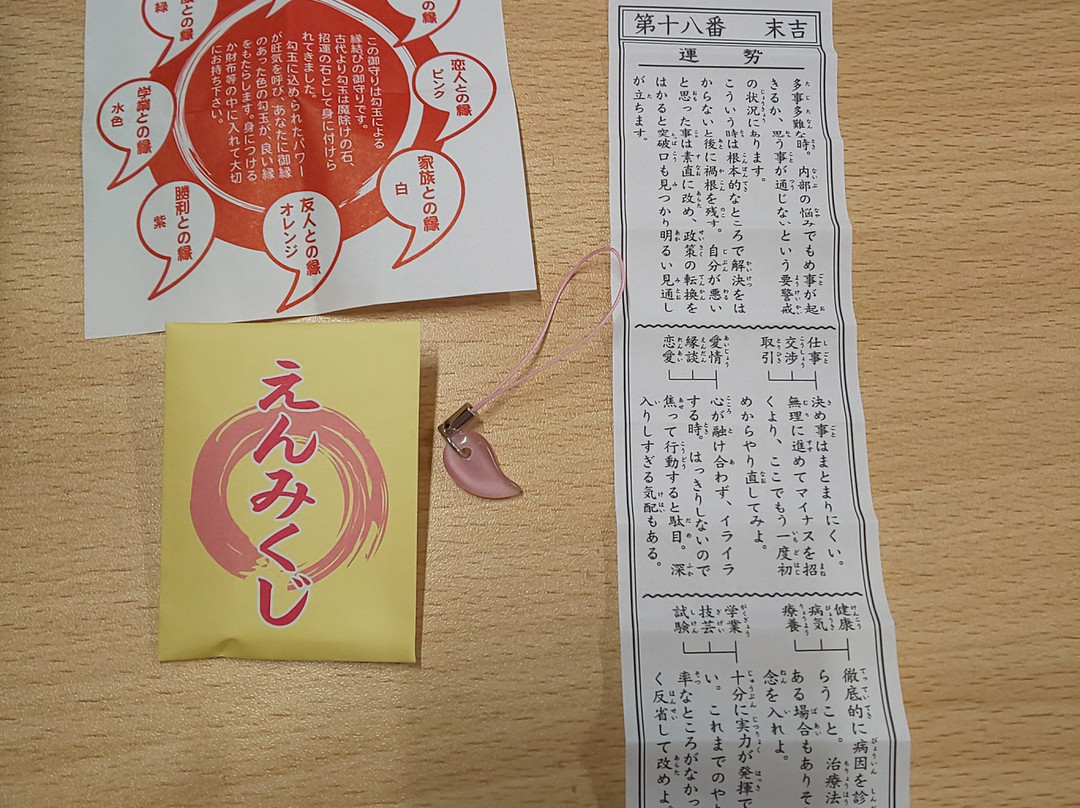 第十八番 末吉
運勢
多事多難な時。内部の悩みでもめ事が起
きるか、思う事が通じないという要警戒
の状況にあります。
こういう時は根本的なところで解決をは
からないと後に禍根を残す。自分が悪い
と思った事は素直に改め、政策の転換を
はかると突破口も見つかり明るい見通し
が立ちます。
仕事
交渉
取引
決め事はまとまりにくい。
無理に進めてマイナスを招
くより、ここでもう一度初
めからやり直してみよ。
愛情
縁談
恋愛
心が融け合わず、イライラ
する時。はっきりしないので
焦って行動すると駄目。深
入りしすぎる気配もある。
健康
病気
療養
徹底的に病因を診
らうこと。治療法
ある場合もありそ
念を入れよ。
学業
技芸
試験
十分に実力が発揮で
い。これまでのや
率なところがなかっ
く反省して改めよ。
の縁
恋人との縁
ピンク
家族との縁
白
友人との縁
オレンジ
勝利との縁
紫
学業との縁
水色
との縁
緑
この御守りは勾玉による
縁結びの御守りです。
古代より勾玉は魔除けの石、
招運の石として身に付けら
れてきました。
勾玉に込められたパワー
が旺気を呼び、あなたに御縁
のあった色の勾玉が、良い縁
をもたらします。身につける
か財布等の中に入れて大切
にお持ち下さい。
えんみくじ